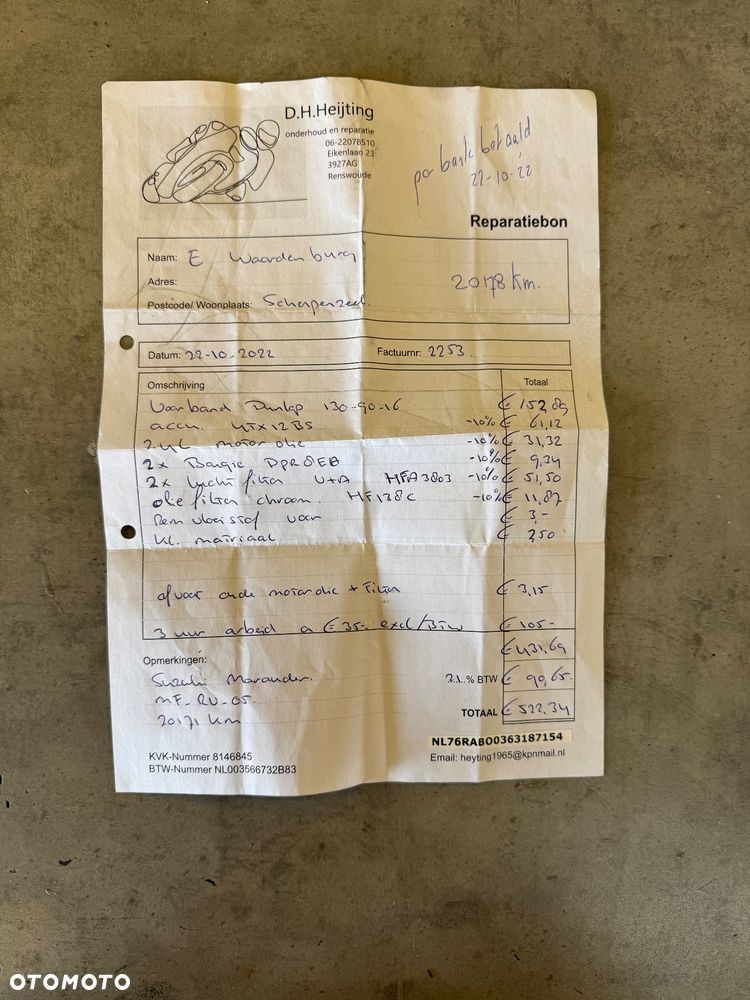 D.H.Heijting
onderhoud en reparatie
06-22078510
Eikenlaan 23
3927AG
Renswoude
per bank betaald
22-10-22
Reparatiebon
Naam: E Waardenburg
Adres:
2078 km.
Postcode/ Woonplaats: Scherpenzeel
Datum: 22-10-2022 Factuurnr: 2253.
Omschrijving Totaal
Voorband Dunlop 130-90-16 € 152,89
accu. YTX12BS -10% € 61,12
motor olie -10% € 31,32
2x Bougie DPR8EB -10% € 9,34
2x lucht filter V+A HFA3803 -10% € 51,50
olie filter chroom. HF138C -10% € 11,87
Rem vloeistof voor € 3,-
kl. matriaal € 2,50
afvoer oude motorolie + filter € 3,15
3 uur arbeid a € 35,- excl/BTW € 105-
€ 431,69
Opmerkingen:
Suzuki Marauder. 21..% BTW € 90,65.
MF-RV-05. TOTAAL € 522,34
20171 km
NL76RABO0363187154
KVK-Nummer 8146845 Email: heyting1965@kpnmail.nl
BTW-Nummer NL003566732B83
OTOMOTO